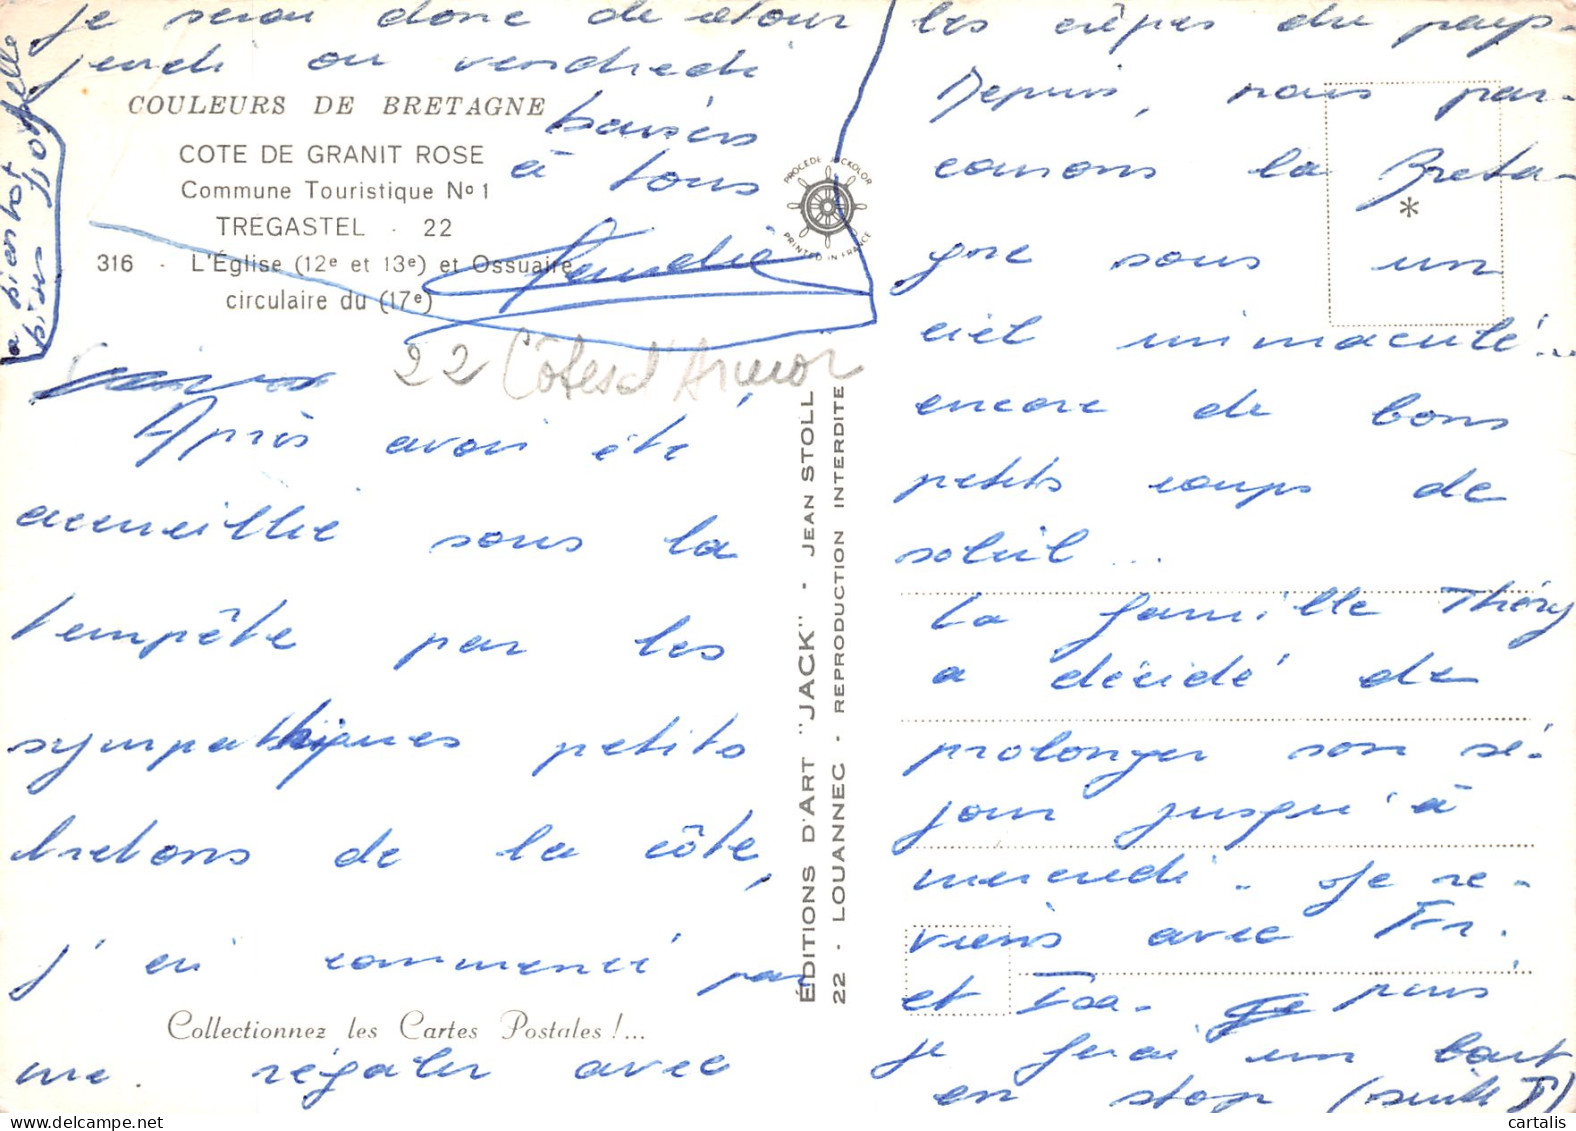 Après avoir été
accueillie sous la
tempête par les
sympathiques petits
bretons de la côte,
j'ai commencé par
me régaler avec
les crêpes du pays.
Depuis, nous par-
courons la Breta-
gne sous un
ciel immaculé...
encore de bons
petits coups de
soleil...
La famille Théry
a décidé de
prolonger son sé-
jour jusqu'à
mercredi. Je re-
viens avec Fr.
et puis
je ferai un bout
en stop (suite
je serai donc de retour
jeudi ou vendredi
baisers
à tous
Claudie
à bientôt
COULEURS DE BRETAGNE
COTE DE GRANIT ROSE
Commune Touristique No 1
TRÉGASTEL - 22
316 - L'Église (12e et 13e) et Ossuaire
circulaire du (17e)
22 Côtes d'Armor
PROCEDE JACKOLOR
PRINTED IN FRANCE
*
ÉDITIONS D'ART "JACK" - JEAN STOLL
22 - LOUANNEC - REPRODUCTION INTERDITE
Collectionnez les Cartes Postales !...
cartalis